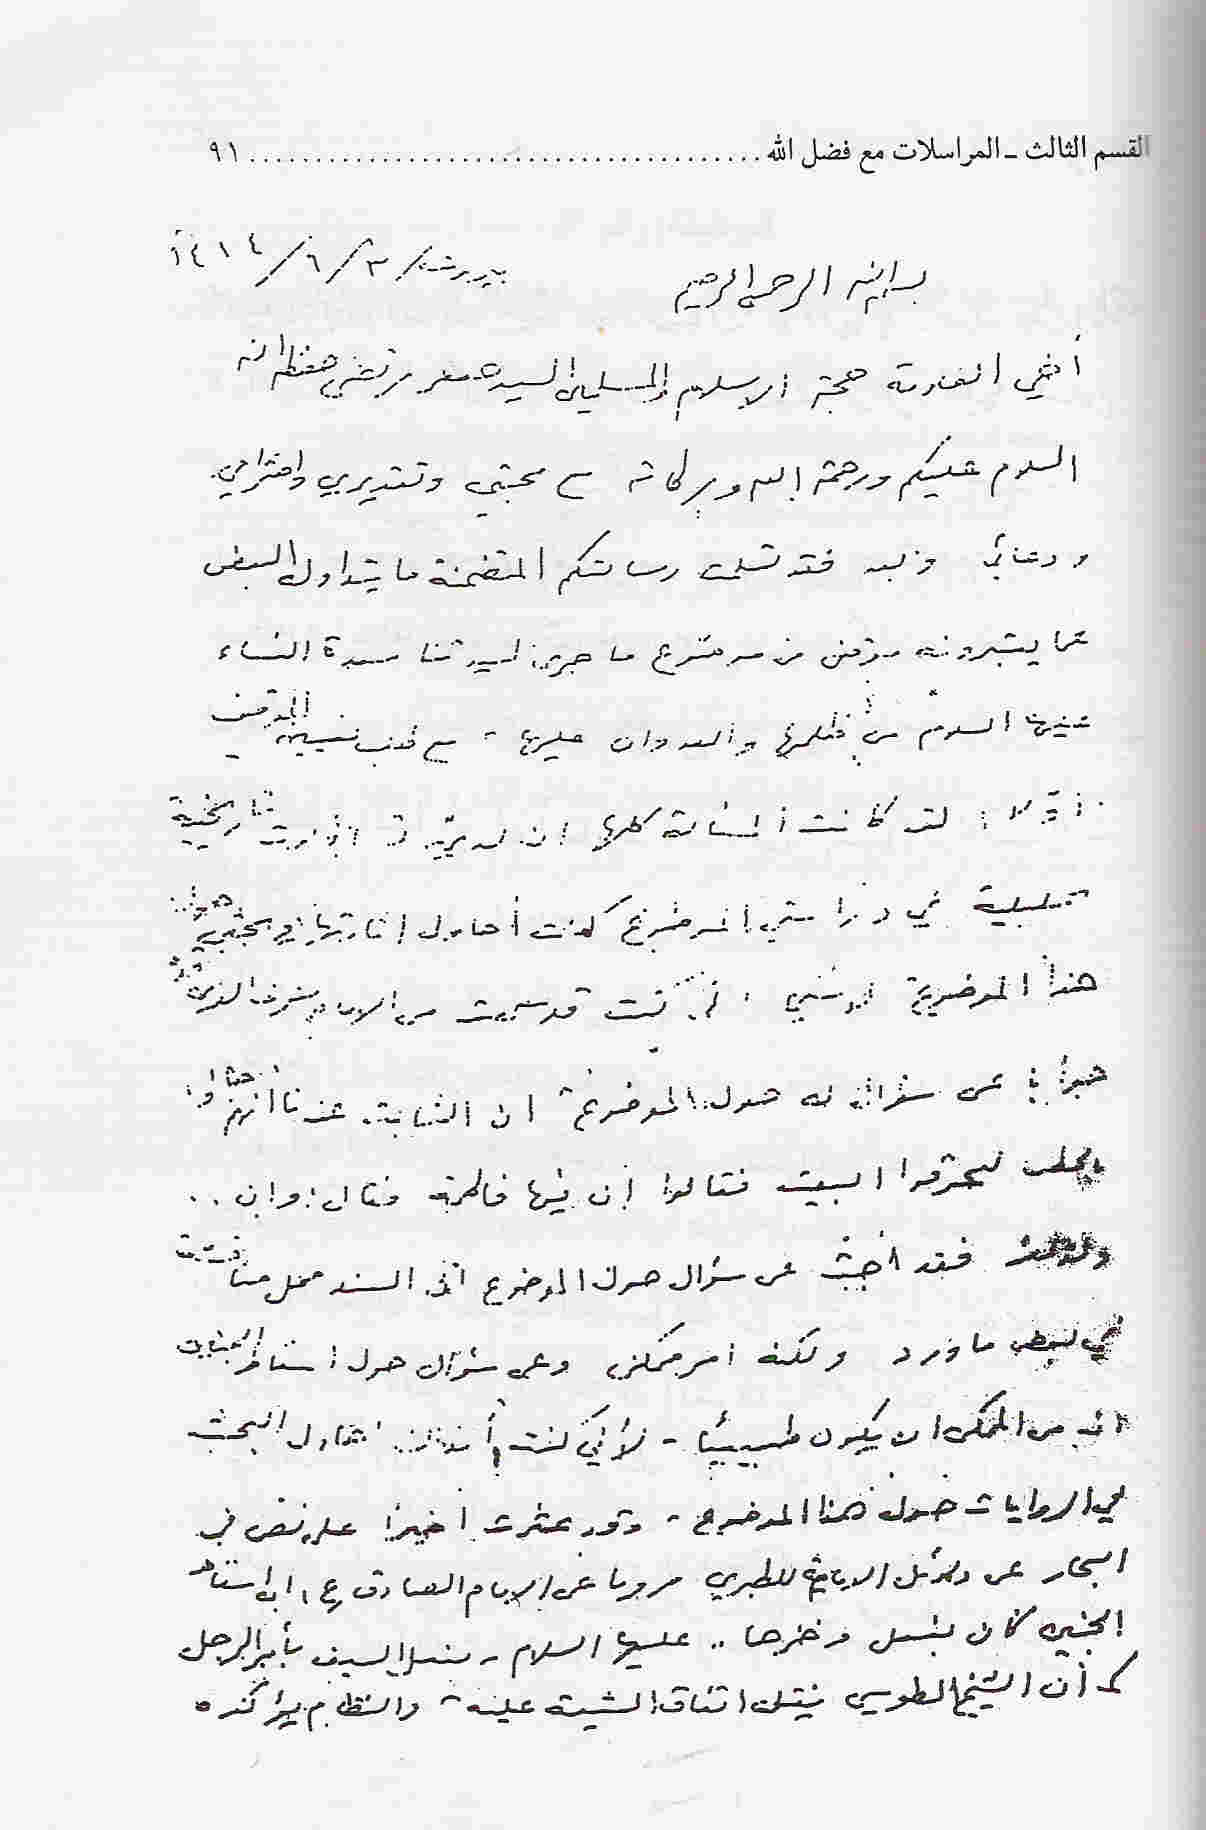 القسم الثالث ـ المراسلات مع فضل الله ........................................ ٩١
بيروت / ٣ / ٦ / ١٤١٤
بسم الله الرحمن الرحيم
أخي العلامة حجة الاسلام والمسلمين السيد جعفر مرتضى حفظه الله
السلام عليكم ورحمة الله وبركاته مع محبتي وتقديري واحترامي
ودعائي وبعد فقد تسلمت رسالتكم المتضمنة ما يتداوله البعض
مما يعتبرونه من موضوع ما جرى لسيدتنا سيدة النساء
عليها السلام من ظلمها والعدوان عليها -
أولاً : لقد كانت المسألة كلها ان لدي تاريخية
تحليلية في دراستي الموضوع كنت أحاول إثارتها في بحثي حول
هذا الموضوع لأنني كنت قد سمعت من الامام شرف الدين
جواباً عن سؤال له حول الموضوع ان الثابت عندنا انهم جاؤا
بالحطب ليحرقوا البيت فقالوا إن فيها فاطمة فقال : وإن ..
فقد أجبت عن سؤال حول الموضوع ان السند محل مناقشة
في بعض ما ورد ولكنه أمر ممكن وعن سؤال حول اسقاط الجنين
انه من الممكن ان يكون طبيعياً - لأني كنت أحاول البحث
في الروايات حول هذا الموضوع - وقد عثرت أخيراً على نص في
البحار عن دلائل الامامة للطبري مرويا عن الامام الصادق (ع) ان اسقاط
الجنين كان بفعل .. عليها السلام - بنعل السيف بأمر الرجل
كما أن الشيخ الطوسي ينقل اتفاق الشيعة عليه - والنظام يؤكده